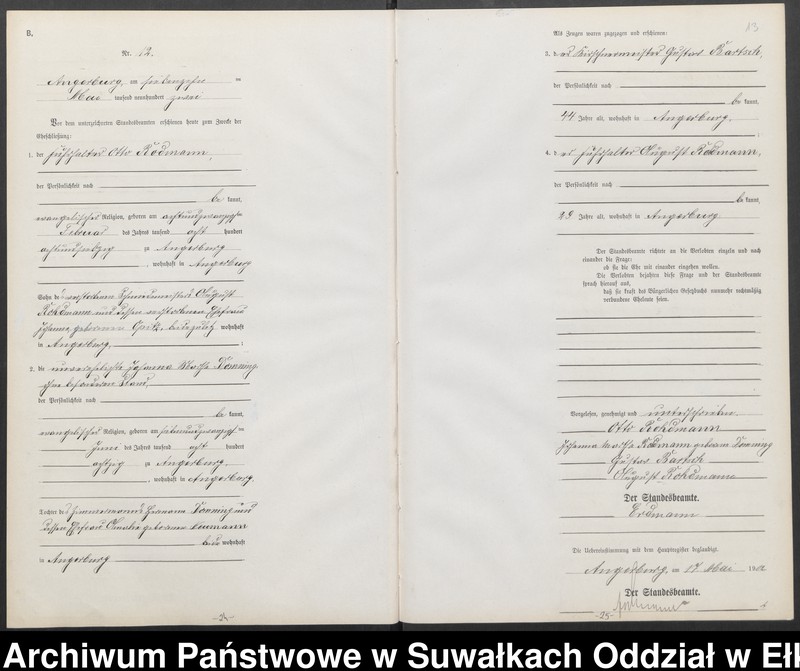 B.
Nr. 12.
Angerburg, am siebenzehn ten
Mai tausend neunhundert zwei
Vor dem unterzeichneten Standesbeamten erschienen heute zum Zwecke der
Eheschließung:
1. der Otto Rohdmann,
der Persönlichkeit nach
be kannt,
evangelischer Religion, geboren am achtundzwanzigsten
Februar des Jahres tausend acht hundert
zu Angerburg
, wohnhaft in Angerburg
Sohn des verstorbenen August
Rohdmann und dessen verstorbenen Ehefrau
geborenen wohnhaft
in Angerburg, ;
2. die unverehelichte Johanna Domning
ohne besonderen Stand,
der Persönlichkeit nach
be kannt,
evangelischer Religion, geboren am
Juni des Jahres tausend acht hundert
achtzig zu Angerburg
, wohnhaft in Angerburg,
Tochter des Zimmermanns Hermann Domning und
dessen Ehefrau geborenen Neumann
beide wohnhaft
in Angerburg
-24-
13
Als Zeugen waren zugezogen und erschienen:
3. der Gustav Bartsch,
der Persönlichkeit nach
be kannt,
44 Jahre alt, wohnhaft in Angerburg,
;
4. der August Rohdmann,
der Persönlichkeit nach
be kannt,
29 Jahre alt, wohnhaft in Angerburg
Der Standesbeamte richtete an die Verlobten einzeln und nach
einander die Frage:
ob sie die Ehe mit einander eingehen wollen.
Die Verlobten bejahten diese Frage und der Standesbeamte
sprach hierauf aus,
daß sie kraft des Bürgerlichen Gesetzbuchs nunmehr rechtmäßig
verbundene Eheleute seien.
Vorgelesen, genehmigt und unterschrieben
Otto Rohdmann
Johanna Rohdmann geborene Domning
Gustav Bartsch
August Rohdmann
Der Standesbeamte.
Erdmann
Die Uebereinstimmung mit dem Hauptregister beglaubigt.
Angerburg, am 17 Mai 1902
Der Standesbeamte.
-25-
Archiwum Państwowe w Suwałkach Oddział w Eł